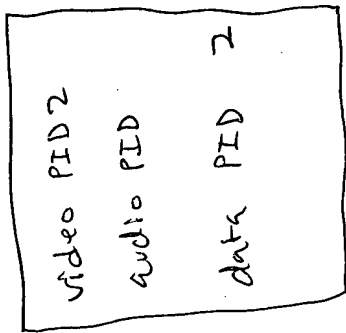 video PID2
audio PID
data PID 2